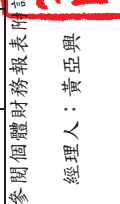 參閱個體財務報表附
經理人：黃亞興